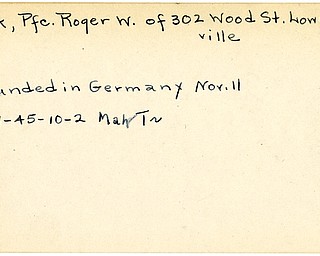 Pfc. Roger W. of 302 Wood St. Low
ville
unded in Germany Nov. 11
-45-10-2 Mah Tr